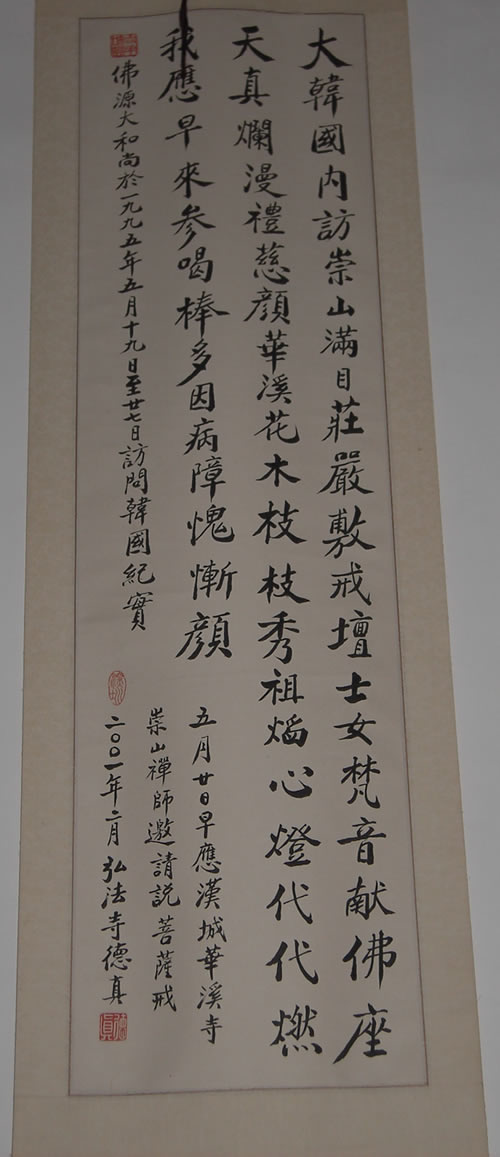 大韓國内訪崇山滿目莊嚴敷戒壇士女梵音献佛座
天真爛漫禮慈顔華溪花木枝枝秀祖焰心燈代代燃
我應早來参喝棒多因病障愧慚顔
五月廿日早應漢城華溪寺
崇山禪師邀請説菩薩戒
佛源大和尚於一九九五年五月十九日至廿七日訪問韓國紀實
二〇〇一年二月弘法寺德真